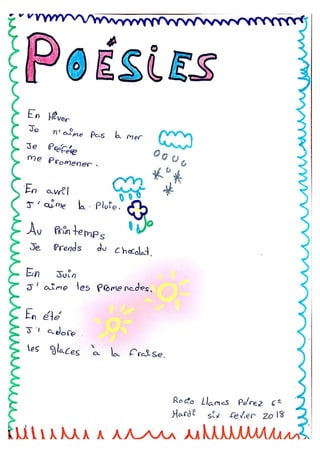 POÉSIES
En Hiver
Je n'aime pas la mer
Je
me promener.
En avril
J'aime la pluie.
Au Printemps
Je Prends du chocolat.
En Juin
J'aime les promenades.
En été
J'adore
les glaces à la fraise.
Rocío Llamas Pérez 6º
Mardi six fevier 2018